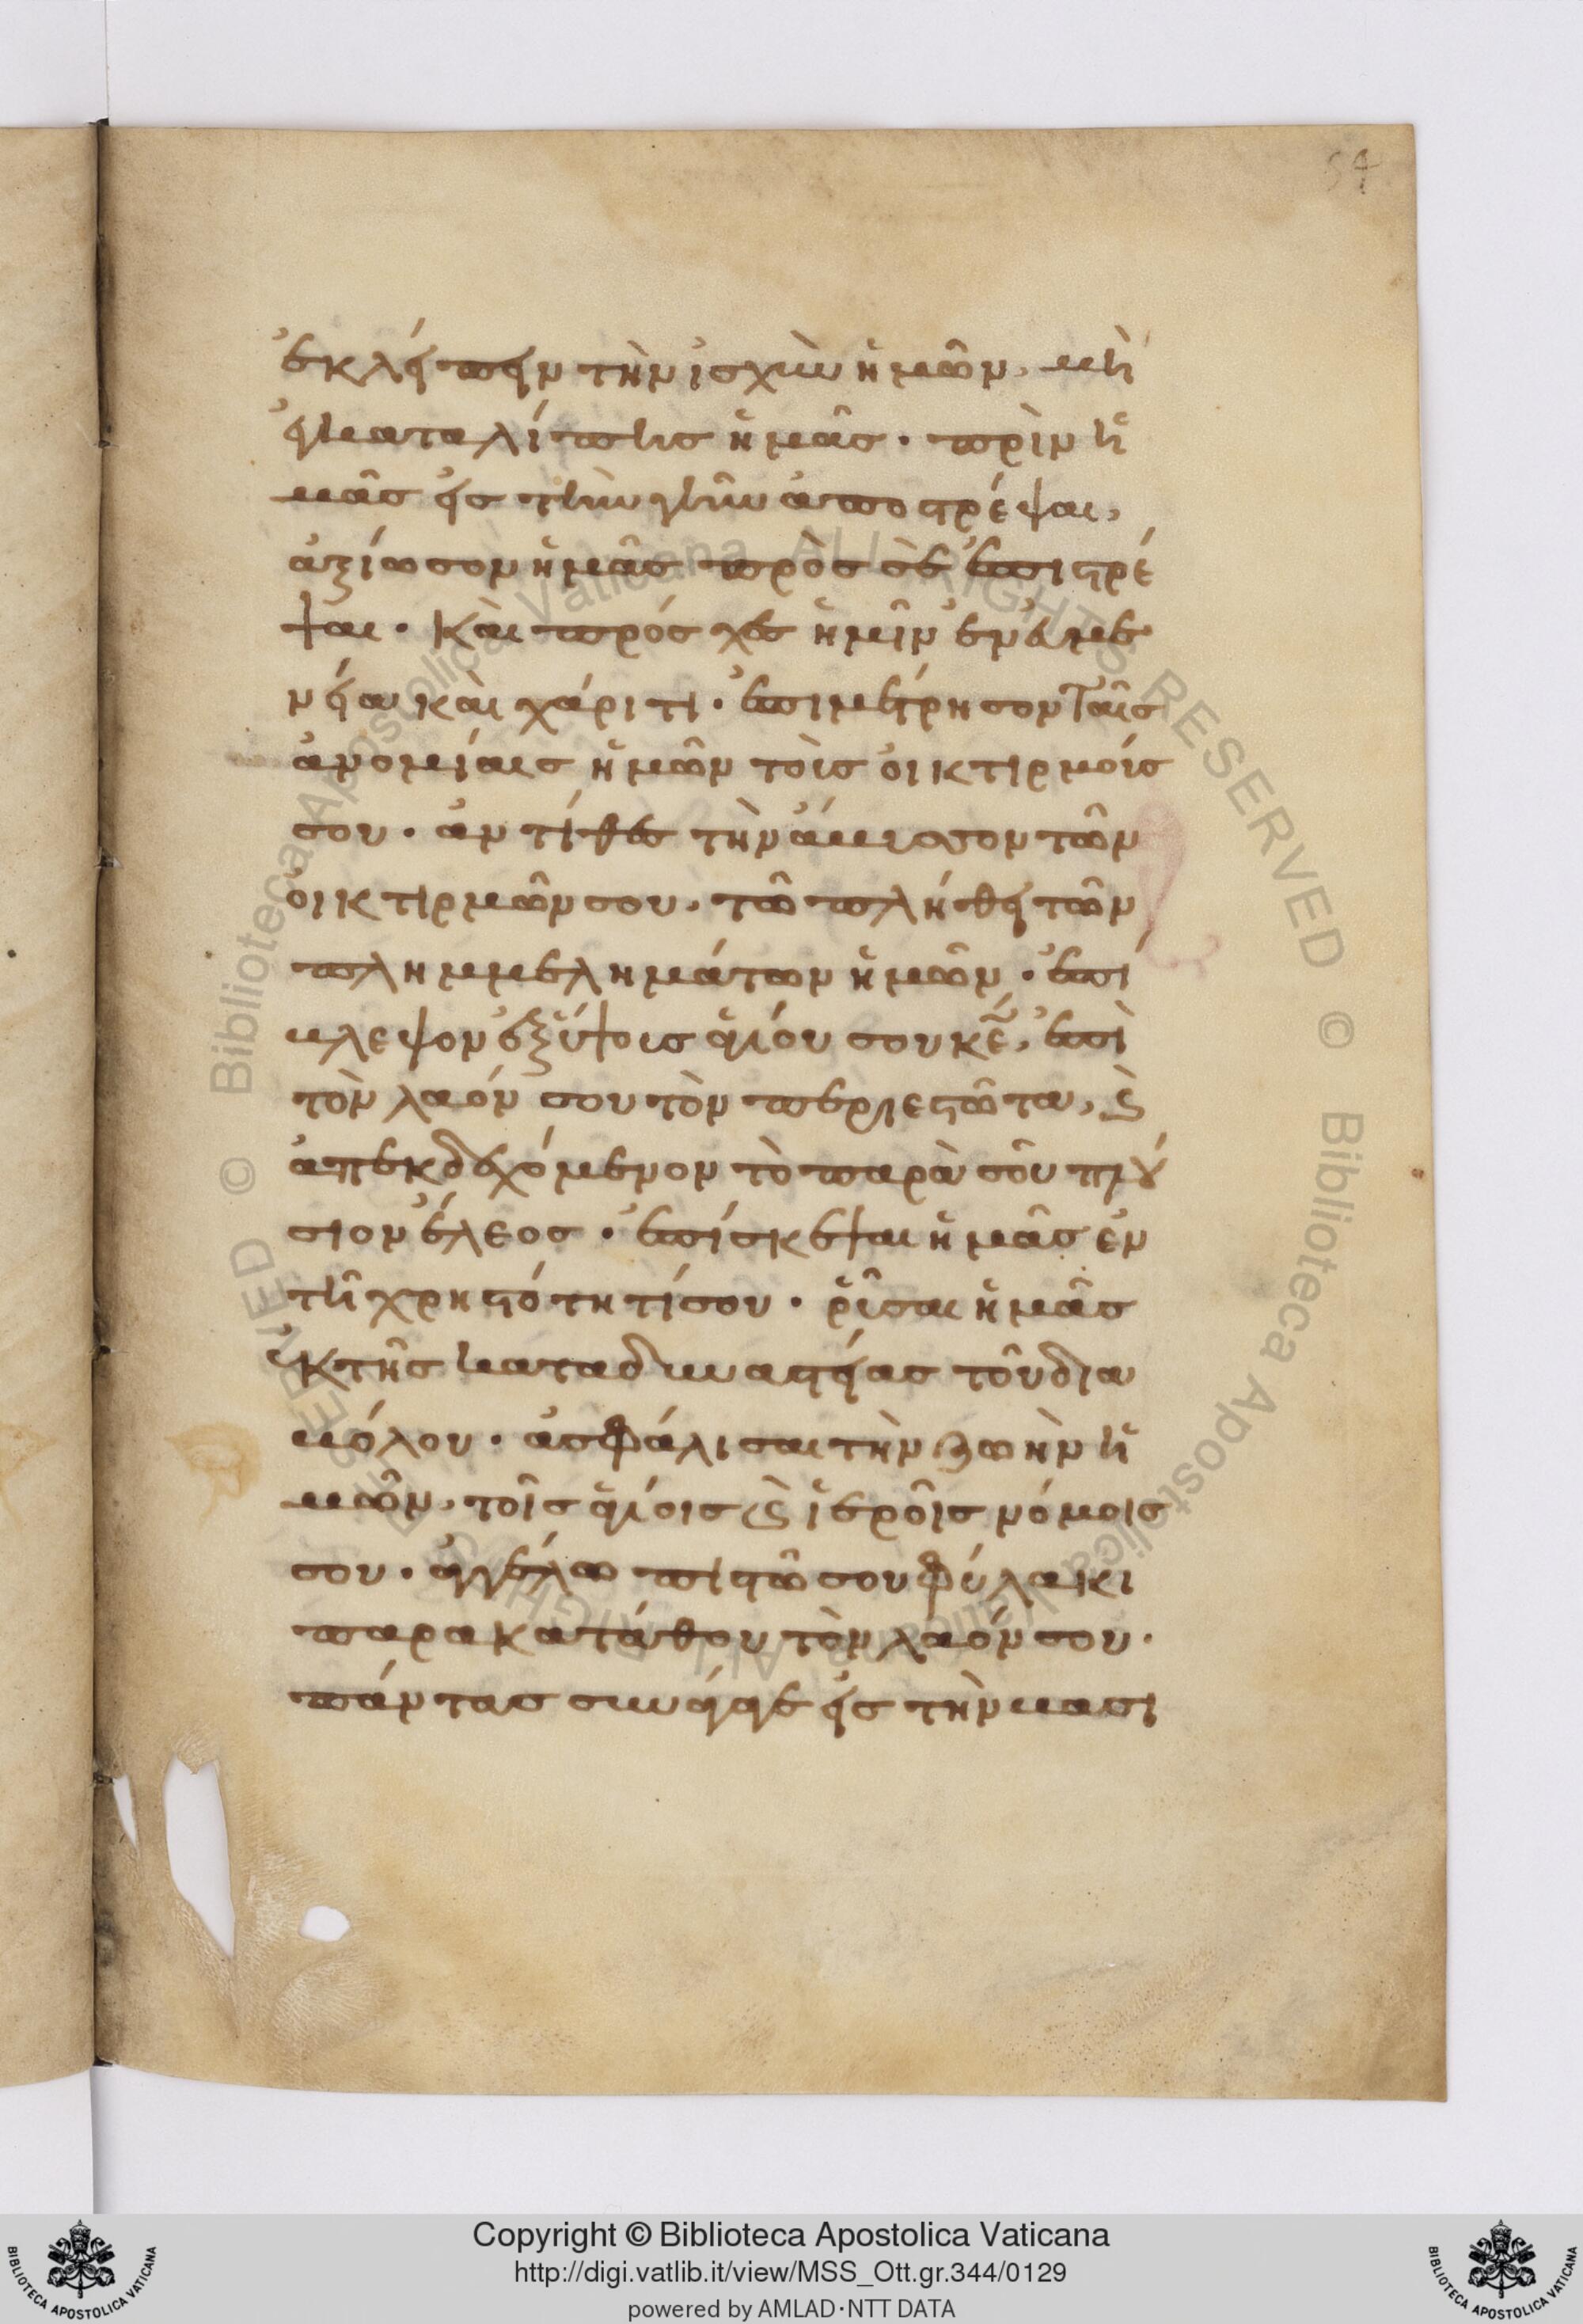 54
ἐκλείπειν τὴν ἰσχὺν ἡμῶν, μὴ
ἐγκαταλίπης ἡμᾶς· πρὶν ἡ
μᾶς εἰς τὴν γῆν ἀποστρέψαι,
ἀξίωσον ἡμᾶς πρὸς σὲ ἐπιστρέ
ψαι· καὶ πρόσχες ἡμῖν ἐν εὐμε
νείαι καὶ χάριτι· ἐπιμέτρησον ταῖς
ἀνομίαις ἡμῶν τοῖς οἰκτιρμοίς
σου· ἀντίθες τὴν ἄβυσσον τῶν
οἰκτιρμῶν σου, τῶ πλήθει τῶν
πλημμελημάτων ἡμῶν· ἐπί
βλεψον ἐξ ὕψοις ἁγίου σου κε, ἐπὶ
τὸν λαόν σου τὸν περιεστῶτα, ϗ
ἀπεκδεχόμενον τὸ παρὰ σοῦ πλού
σιον ἔλεος· ἐπίσκεψαι ἡμᾶς ἐν
τῆ χρηστότητί σου· ῥῦσαι ἡμᾶς
ἐκ τῆς καταδυναστείας τοῦ δια
βόλου· ἀσφάλισαι τὴν ζωὴν ἡ
μῶν, τοῖς ἁγίοις ϗ ἱεροῖς νόμοις
σου· ἀγγέλω πιστῶ σου φύλακι
παρακατάθου τὸν λαόν σου·
πάντας συνάγαγε εἰς τὴν βασι
Copyright © Biblioteca Apostolica Vaticana
http://digi.vatlib.it/view/MSS_Ott.gr.344/0129
powered by AMLAD·NTT DATA